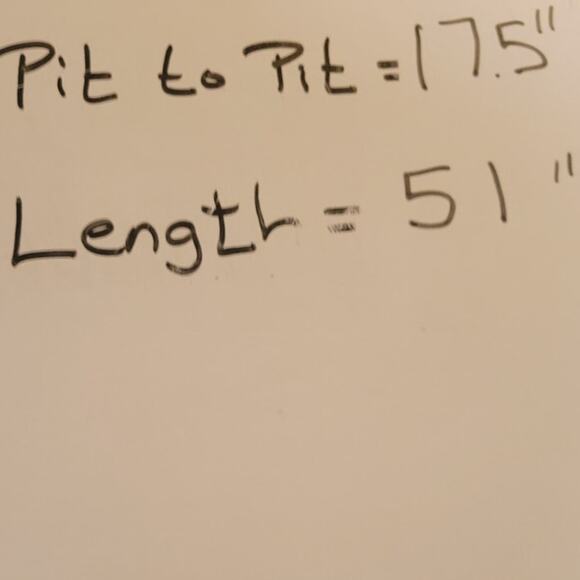 Pit to Pit = 17.5"
Length = 51"